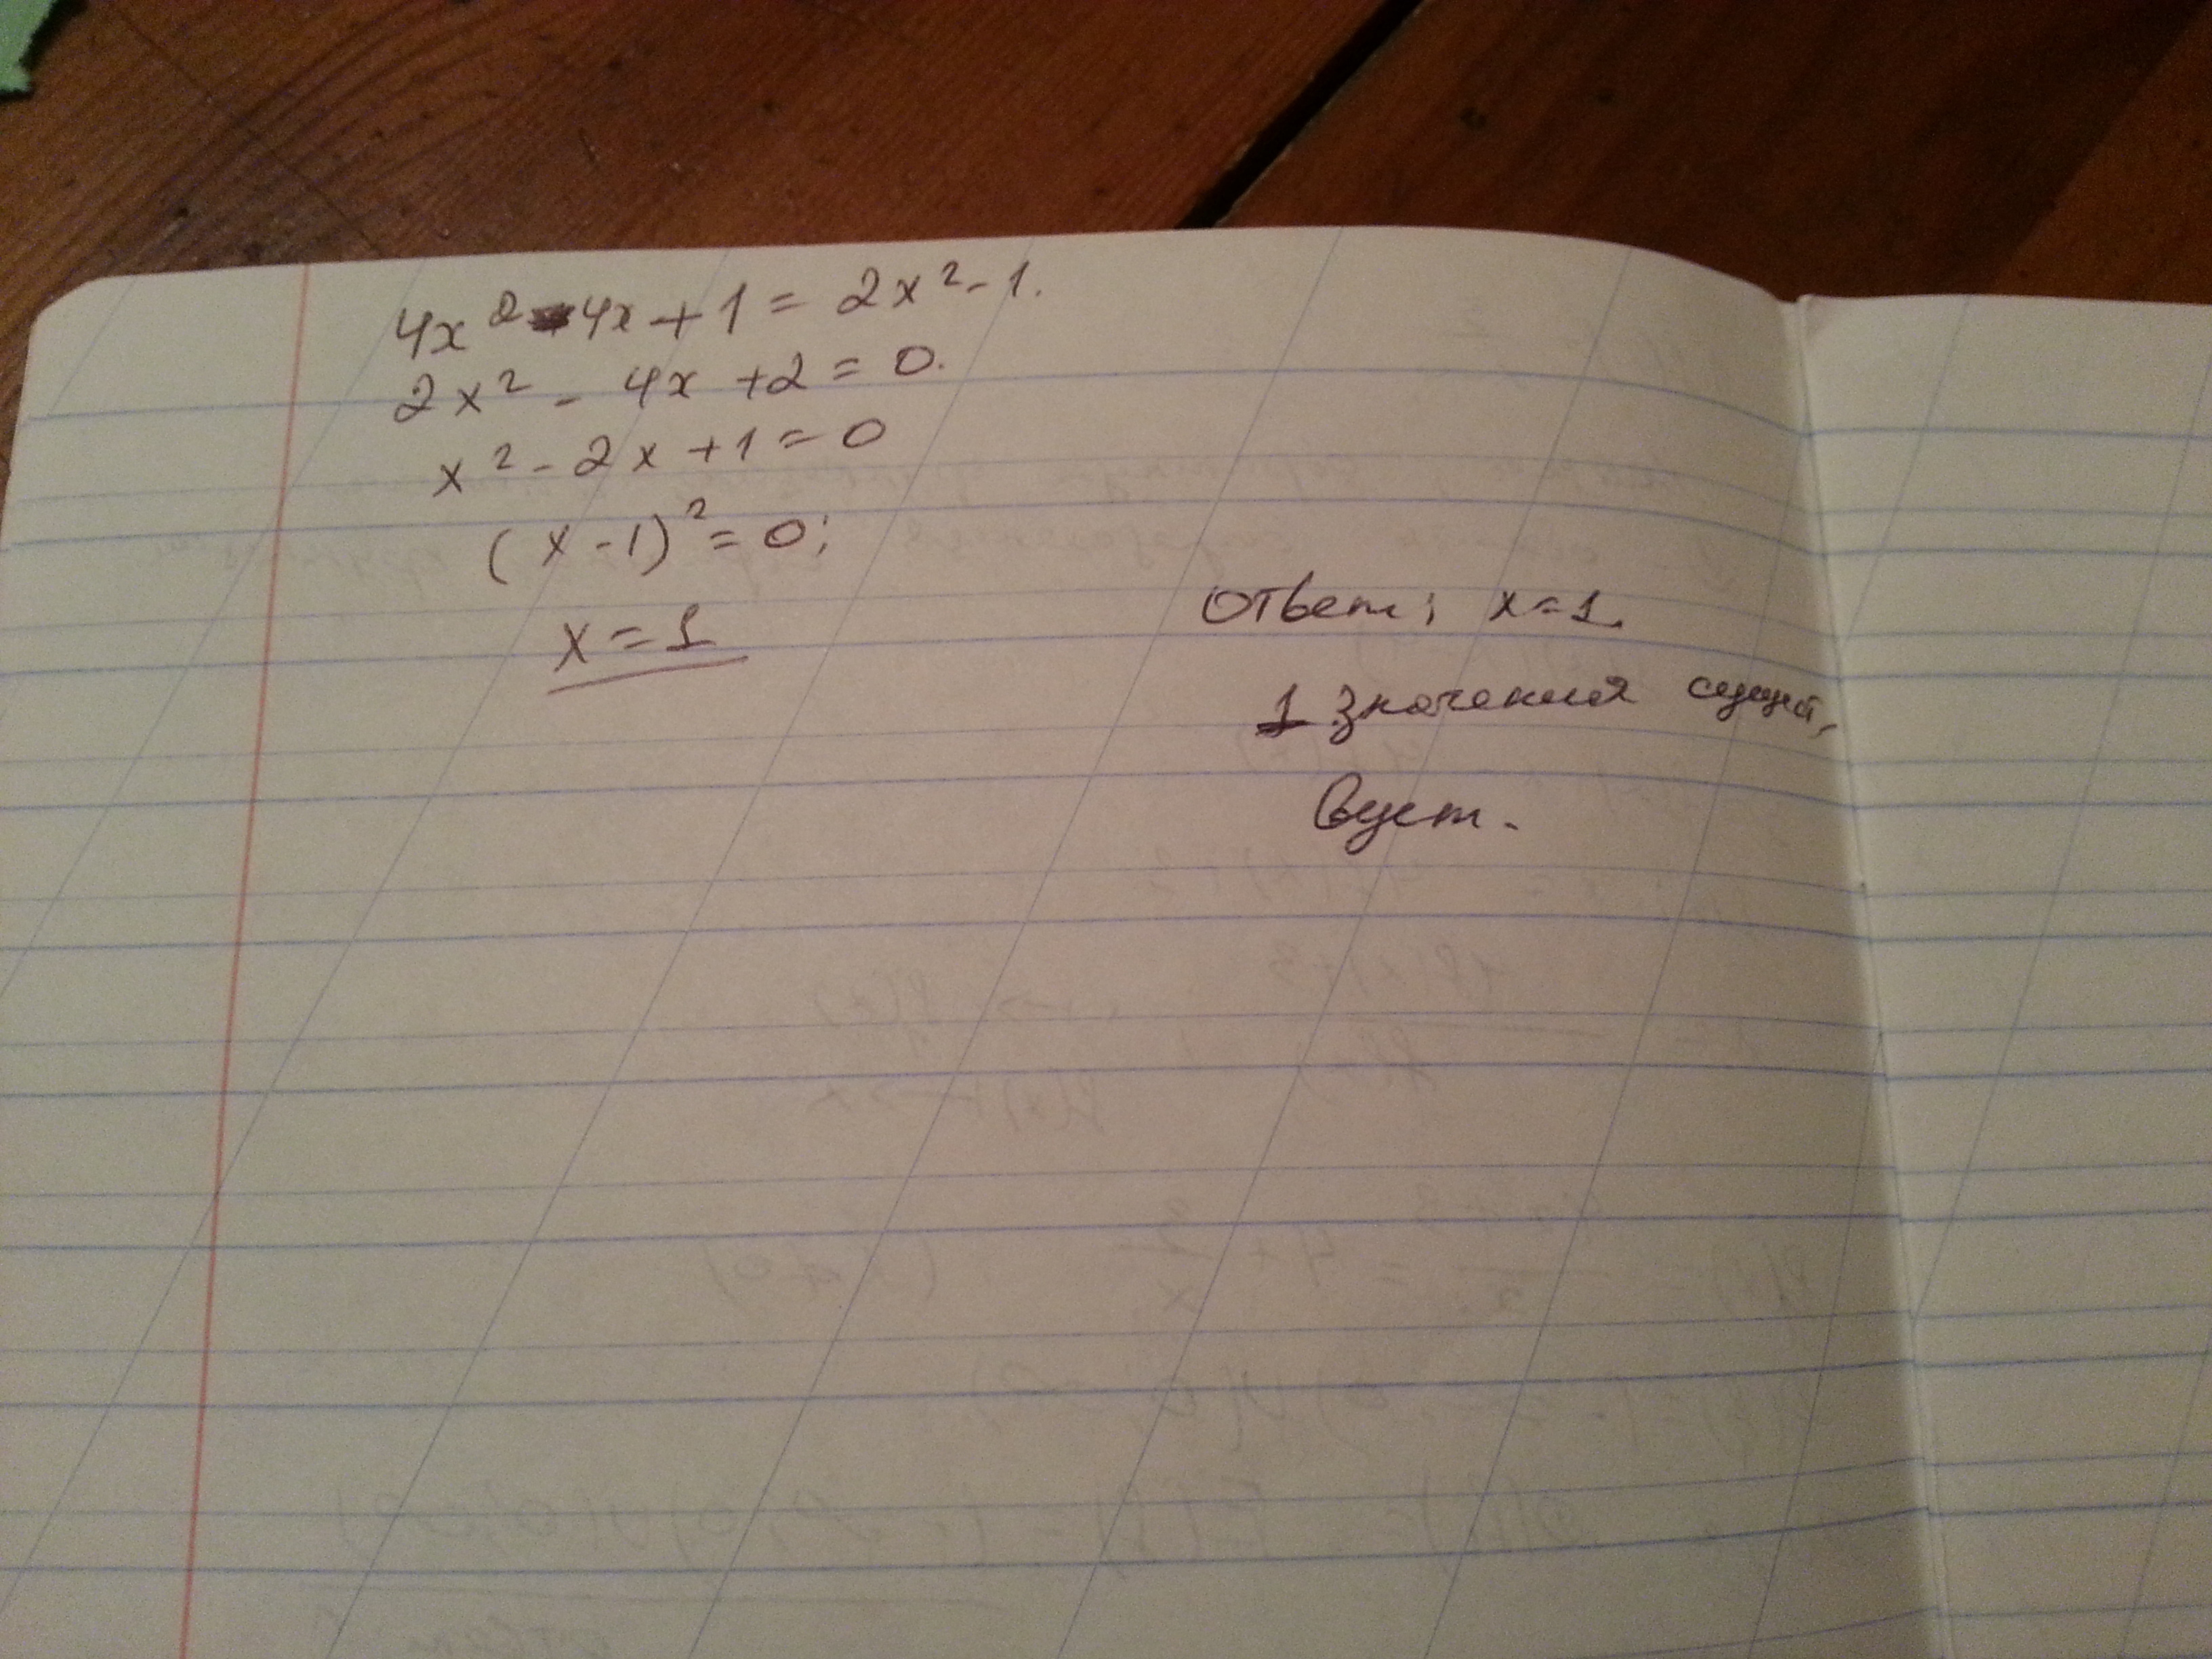 4x² - 4x + 1 = 2x² - 1.
2x² - 4x + 2 = 0.
x² - 2x + 1 = 0
(x - 1)² = 0;
x = 1
Ответ: x = 1.
1 значения сущест,
вует.